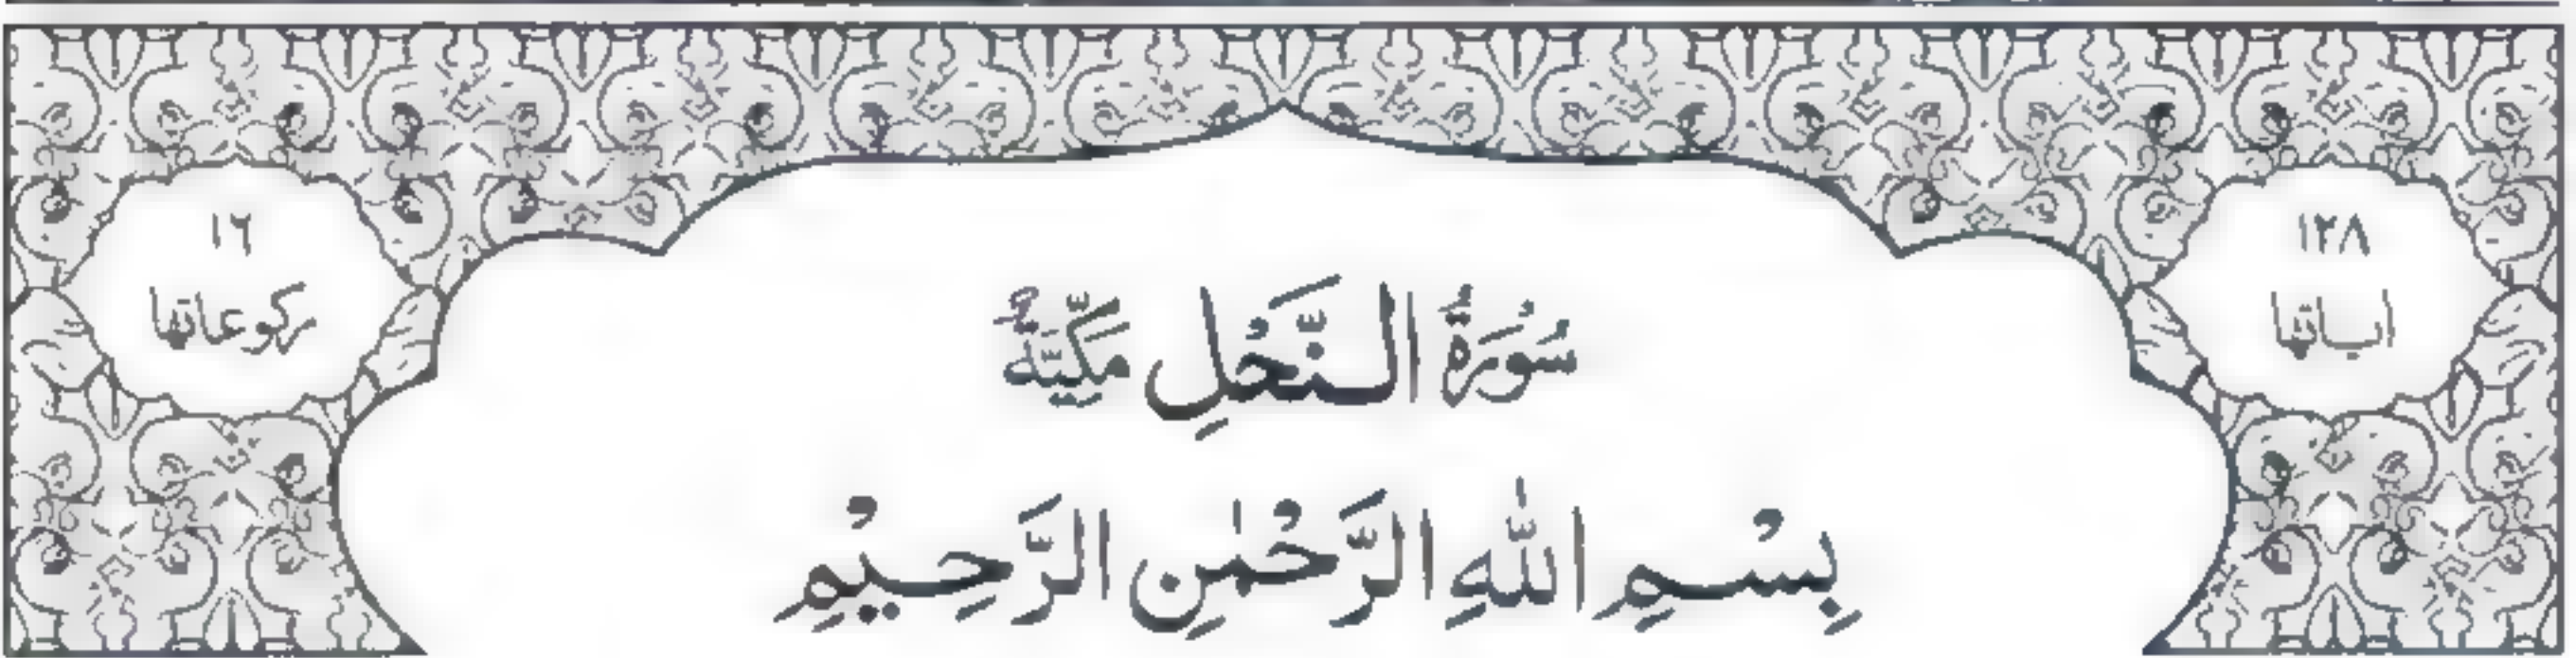 ١٢٨
اٰیاتها
سُوْرَةُ النَّحْلِ مَكِّيَّةٌ
١٦
ركوعاتها
بِسْمِ اللّٰهِ الرَّحْمٰنِ الرَّحِيْمِ